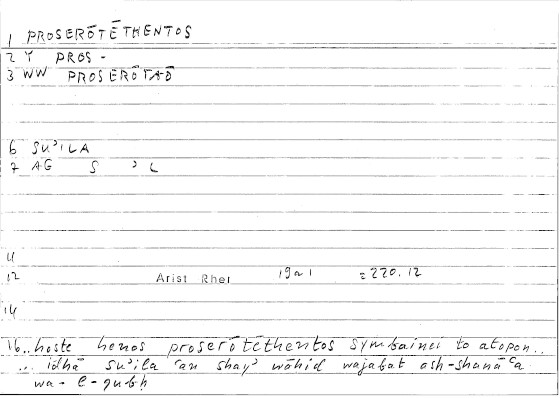 1 PROSERŌTĒTHENTOS
2 Y PROS -
3 WW PROSERŌTAŌ
6 SU'ILA
7 AG S ' L
11
12 Arist Rher 19a1 =220.12
14
16 ..hoste henos proserōtēthentos symbainei to atopon..
.. idhā su'ila 'an shay' wāhid wajabat ash-shanā'a
wa-l-qubḥ